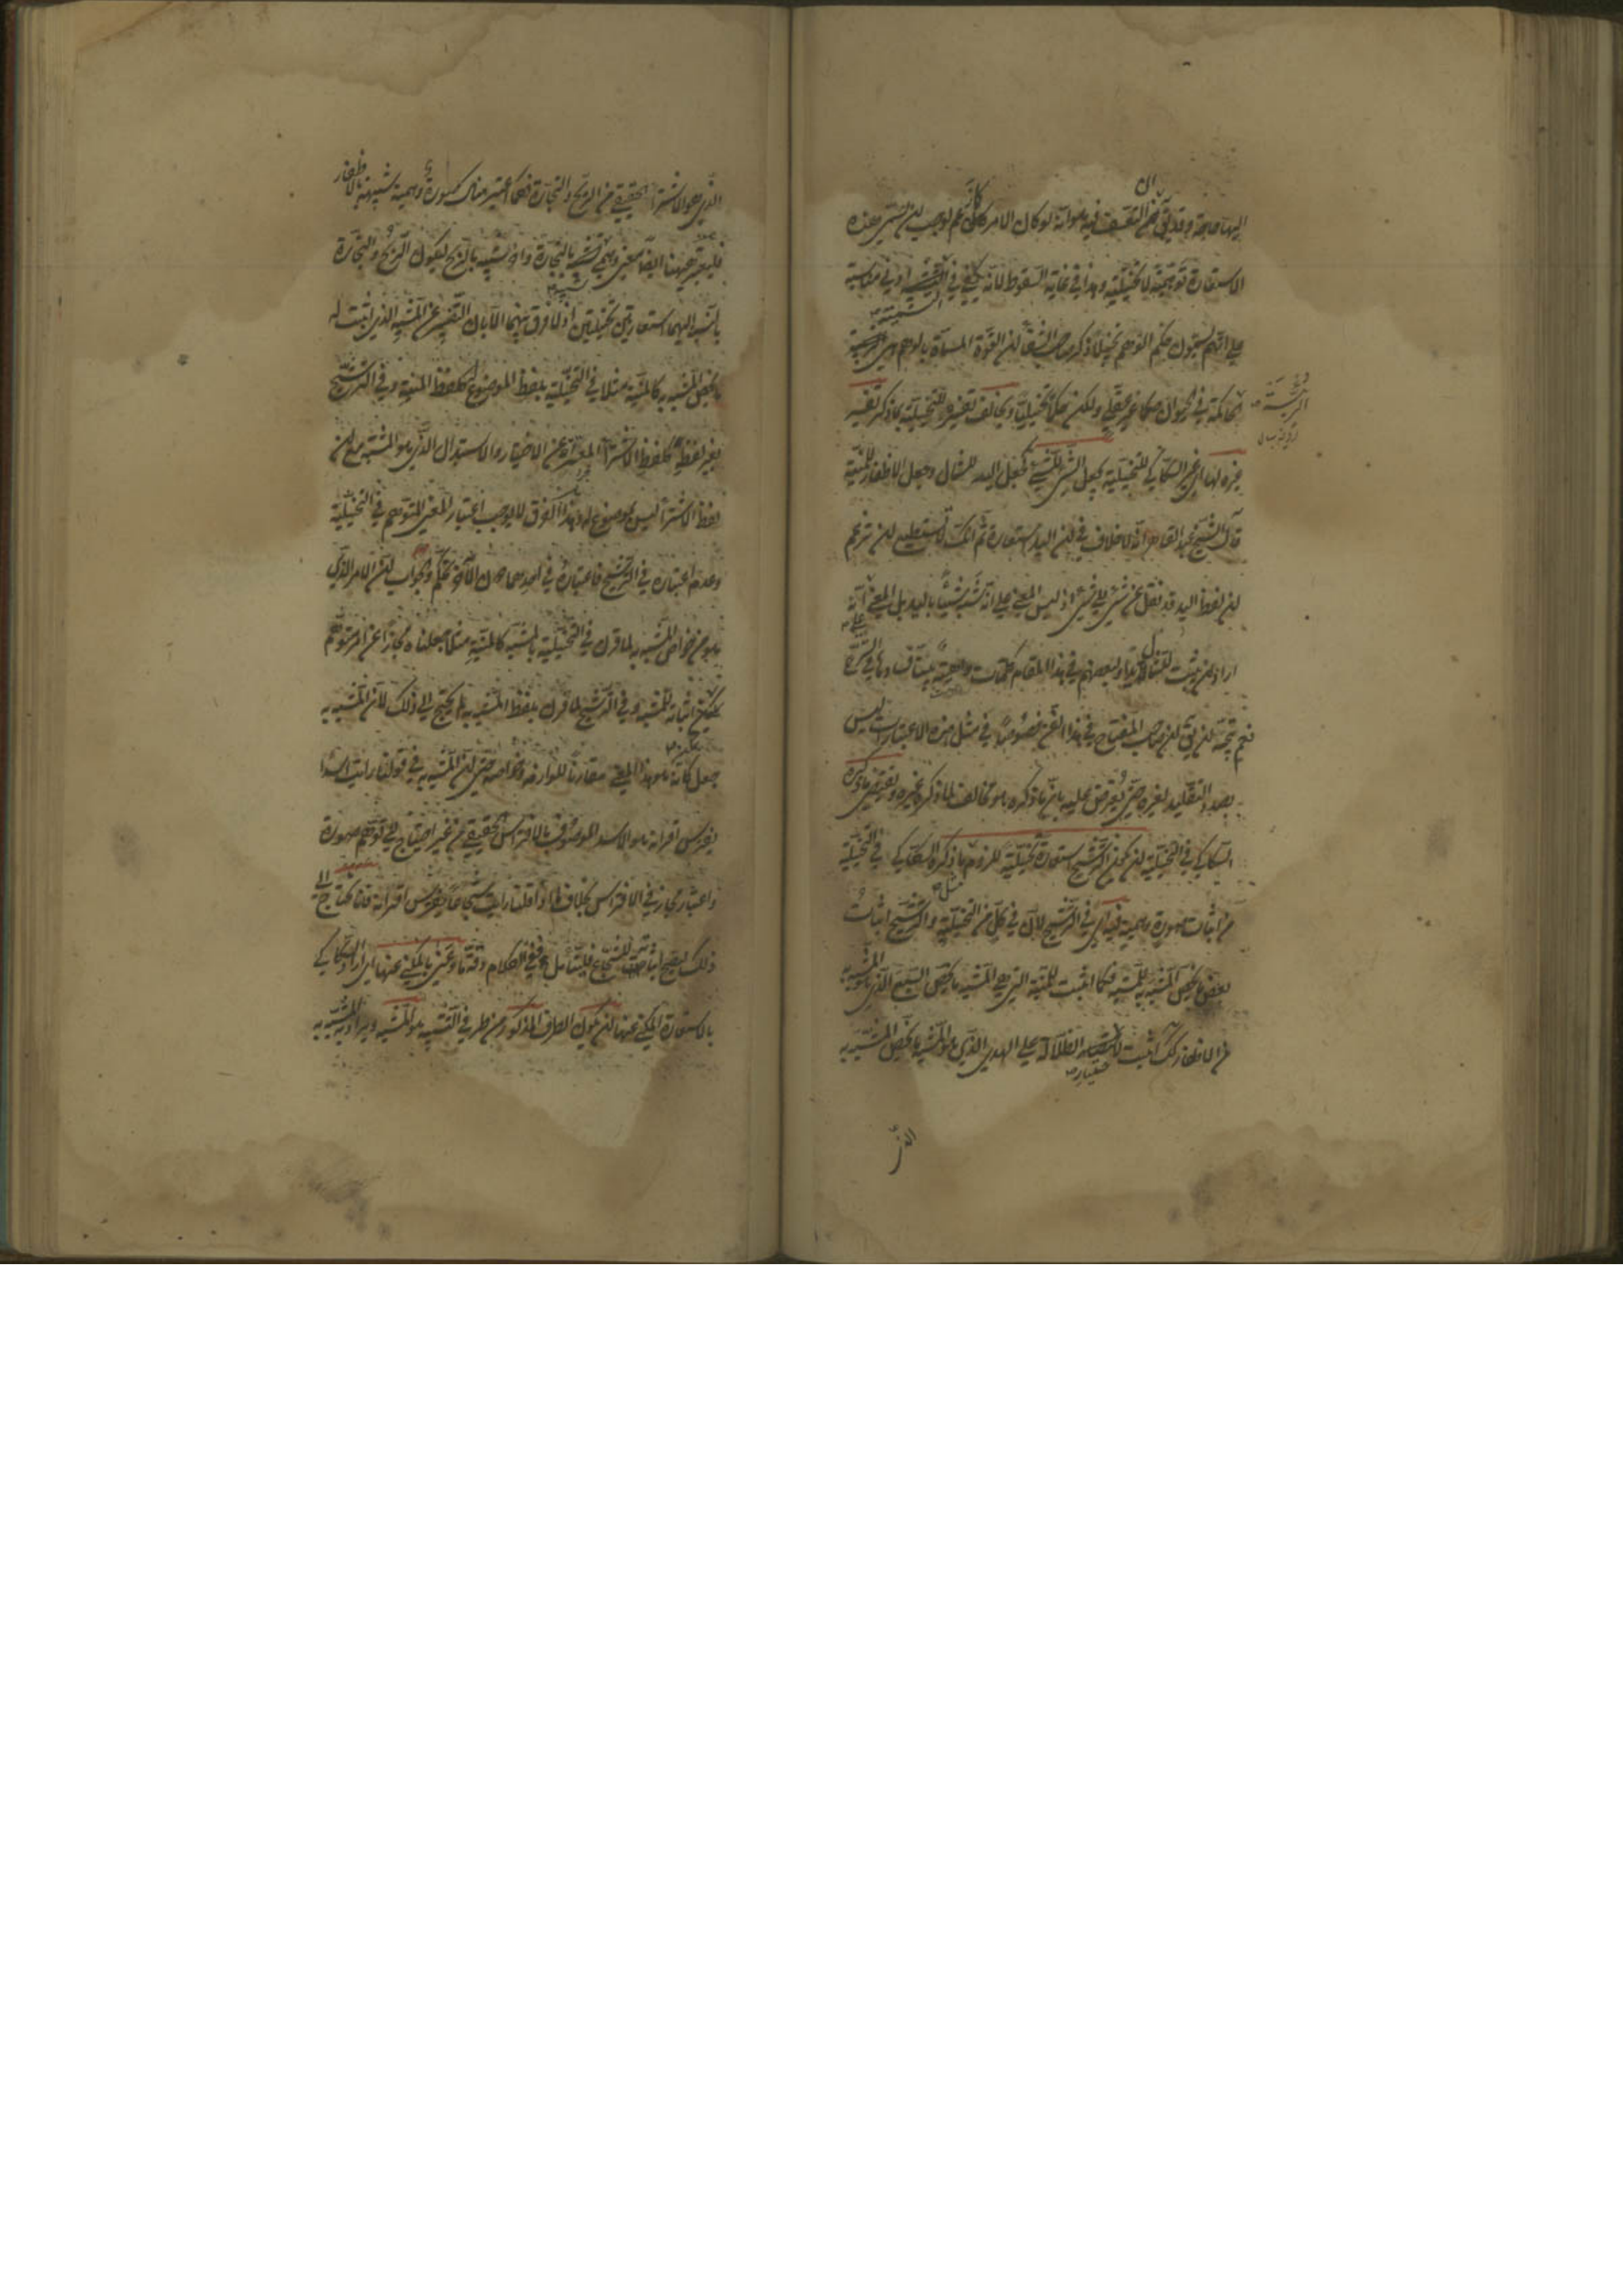 اليها حاجة وقد يقال ان التعسف فيه هو انه لو كان الامر كما زعم لوجب ان تسمى هذه
الاستعارة توهمية لا تخييلية وهذا في غاية السقوط لانه يكفي في التسمية ادنى مناسبة
على انهم يسمون حكم الوهم تخييلا ذكر صاحب الشفا ان القوة المسماة بالوهم هي الرئيسة
الحاكمة في الحيوان حكما غير عقلي ولكن حكما تخييليا ويخالف تفسيره للتخييلية بما ذكر تفسير
غيره لها اي غير السكاكي للتخييلية بجعل الشيء للشيء كجعل اليد للشمال وجعل الاظفار للمنية
قال الشيخ عبد القاهر انه لا خلاف في ان اليد استعارة ثم انك لا تستطيع ان تزعم
ان لفظ اليد قد نقل عن شيء الى شيء اذ ليس المعنى على انه شبه شيئا باليد بل المعنى على انه
اراد ان يثبت للشمال يدا ولبعضهم في هذا المقام كلمات واهية بينا فسادها في الشرح
نعم يتجه ان يقال ان صاحب المفتاح في هذا الفن خصوصا في مثل هذه الاعتبارات ليس
بصدد التقليد لغيره حتى يعترض عليه بان ما ذكره هو مخالف لما ذكره غيره ويقتضي ما ذكره
السكاكي في التخييلية ان يكون الترشيح استعارة تخييلية للزوم مثل ما ذكره السكاكي في التخييلية
من اثبات صورة وهمية فيه اي في الترشيح لان في كل من التخييلية والترشيح اثبات
بعض ما يخص المشبه به للمشبه فكما اثبت للمنية التي هي المشبه ما يخص السبع الذي هو المشبه به
من الاظفار كذلك اثبت لاختيار الضلالة على الهدى الذي هو المشبه ما يخص المشبه به
الذي
الذي هو الاشتراء الحقيقي من الربح والتجارة فكما اعتبر هناك صورة وهمية شبيهة بالاظفار
فليعتبر ههنا ايضا معنى وهمي شبيه بالتجارة وآخر شبيه بالربح ليكون الربح والتجارة
بالنسبة اليهما استعارتين تخييليتين اذ لا فرق بينهما الا بان التعبير عن المشبه الذي اثبت له
ما يخص المشبه به كالمنية مثلا في التخييلية بلفظ الموضوع له كلفظ المنية وفي الترشيح
بغير لفظه كلفظ الاشتراء المعبر به عن الاختيار والاستبدال الذي هو المشبه مع ان
لفظ الاشتراء ليس بموضوع له وهذا الفرق لا يوجب اعتبار المعنى المتوهم في التخييلية
وعدم اعتباره في الترشيح فاعتباره في احدهما دون الآخر تحكم والجواب ان الامر الذي
هو من خواص المشبه به لما قرن في التخييلية بالمشبه كالمنية مثلا جعلناه مجازا عن امر متوهم
يمكن اثباته للمشبه وفي الترشيح لما قرن بلفظ المشبه به لم يحتج الى ذلك لان المشبه به
جعل كانه هو هذا المعنى مقارنا للوازمه وخواصه حتى ان المشبه به في قولنا رايت اسدا
يفترس اقرانه هو الاسد الموصوف بالافتراس الحقيقي من غير احتياج الى توهم صورة
واعتبار مجاز في الافتراس بخلاف ما اذا قلنا رايت شجاعا يفترس اقرانه فانا نحتاج الى
ذلك ليصح اثباته للشجاع فليتامل ففي الكلام دقة ما وعنى بالمكني عنها اي اراد السكاكي
بالاستعارة المكني عنها ان يكون الطرف المذكور من طرفي التشبيه هو المشبه ويراد به المشبه به